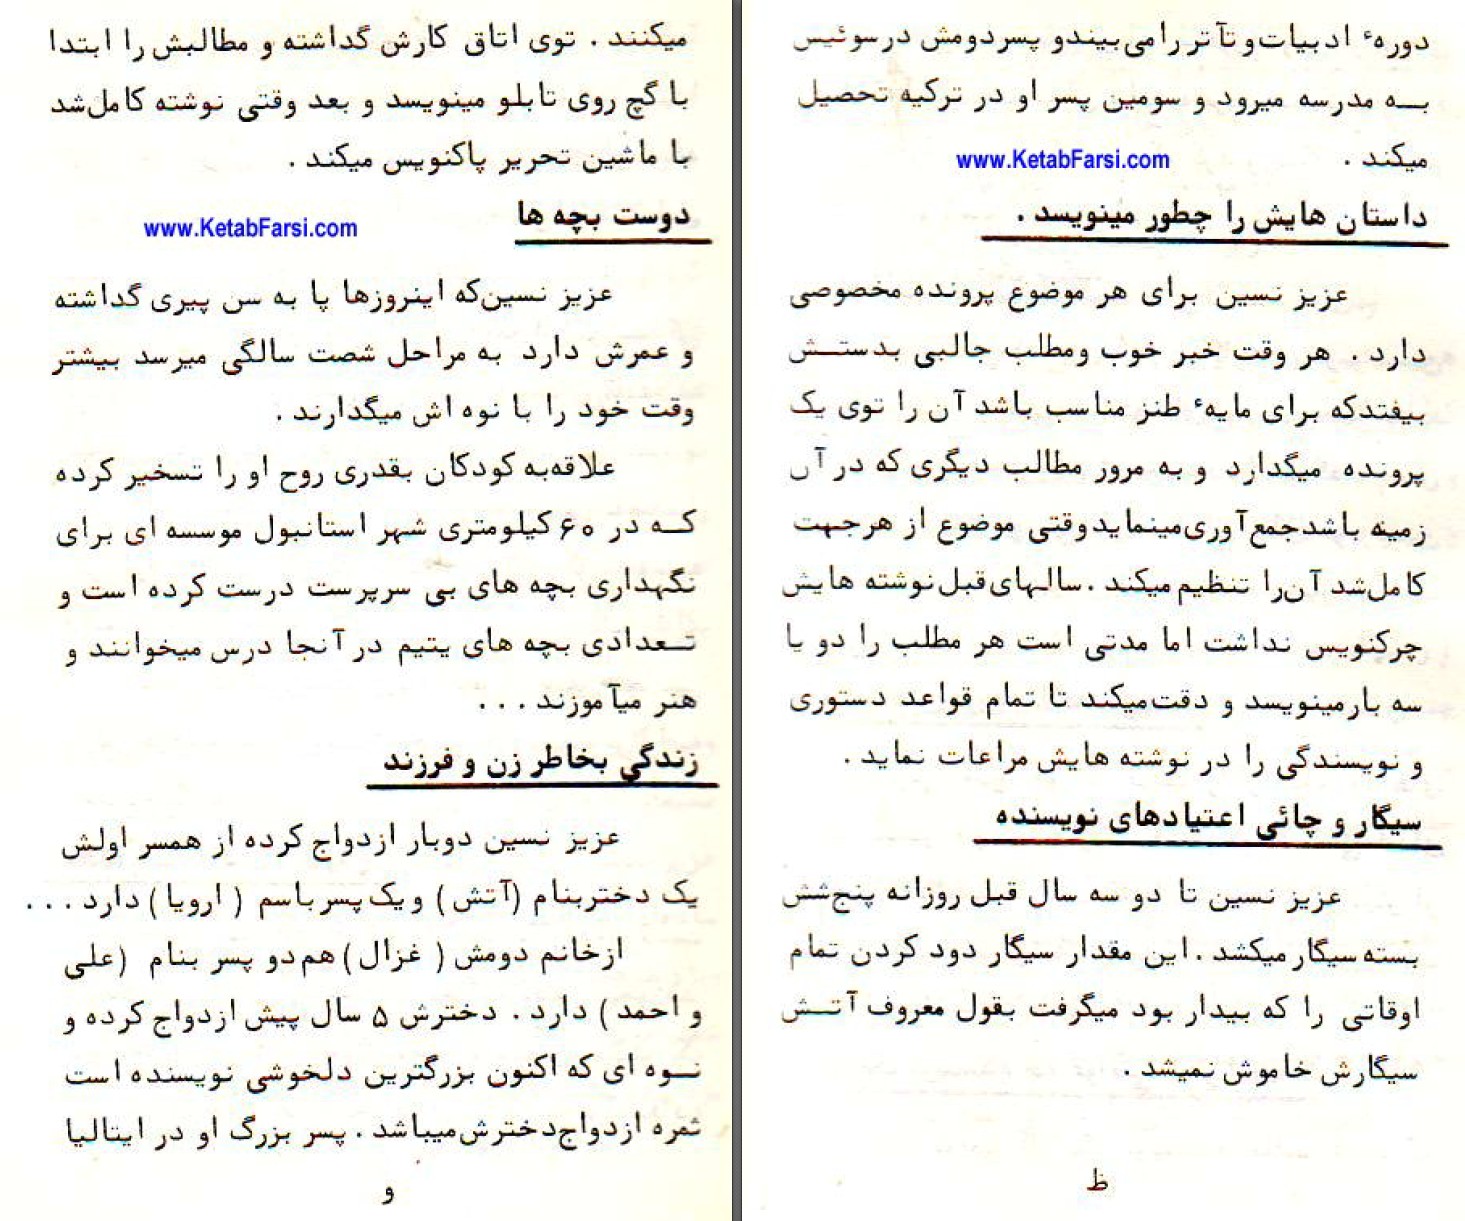 میکنند . توی اتاق کارش گداشته و مطالبش را ابتدا
با گچ روی تابلو مینویسد و بعد وقتی نوشته کامل‌شد
با ماشین تحریر پاکنویس میکند .
دوست بچه ها
www.KetabFarsi.com
عزیز نسین‌که اینروزها پا به سن پیری گداشته
و عمرش دارد به مراحل شصت سالگی میرسد بیشتر
وقت خود را با نوه اش میگدارند .
علاقه‌به کودکان بقدری روح او را تسخیر کرده
کـه در ۶۰ کیلومتری شهر استانبول موسسه ای برای
نگهداری بچه های بی سرپرست درست کرده است و
تـعدادی بچه های یتیم در آنجا درس میخوانند و
هنر میآموزند . . .
زندگی بخاطر زن و فرزند
عزیز نسین دوبار ازدواج کرده از همسر اولش
یک دختربنام (آتش) ویک‌پسرباسم ( ارویا ) دارد . . .
ازخانم دومش ( غزال ) هم‌دو پسر بنام (علی
و احمد ) دارد . دخترش ۵ سال پیش ازدواج کرده و
نـوه ای که اکنون بزرگترین دلخوشی نویسنده است
ثمره ازدواج‌دخترش‌میباشد . پسر بزرگ او در ایتالیا
و
دوره‌ٔ ادبیات‌و تآتر رامی‌بیندو پسردومش درسوئیس
بـه مدرسه میرود و سومین پسر او در ترکیه تحصیل
میکند .
www.KetabFarsi.com
داستان هایش را چطور مینویسد .
عزیز نسین برای هر موضوع پرونده مخصوصی
دارد . هر وقت خبر خوب ومطلب جالبی بدستـش
بیفتدکه برای مایهٔ طنز مناسب باشد آن را توی یک
پرونده میگدارد و به مرور مطالب دیگری که در آن
زمینه باشدجمع‌آوری‌مینمایدوقتی موضوع از هرجهت
کامل‌شد آن‌را تنظیم‌میکند . سالهای‌قبل‌نوشته هایش
چرکنویس نداشت اما مدتی است هر مطلب را دو یا
سه بارمینویسد و دقت‌میکند تا تمام قواعد دستوری
و نویسندگی را در نوشته هایش مراعات نماید .
سیگار و چائی اعتیادهای نویسنده
عزیز نسین تا دو سه سال قبل روزانه پنج‌شش
بسته سیگارمیکشد . این مقدار سیگار دود کردن تمام
اوقاتی را که بیدار بود میگرفت بقول معروف آتـش
سیگارش خاموش نمیشد .
ظ